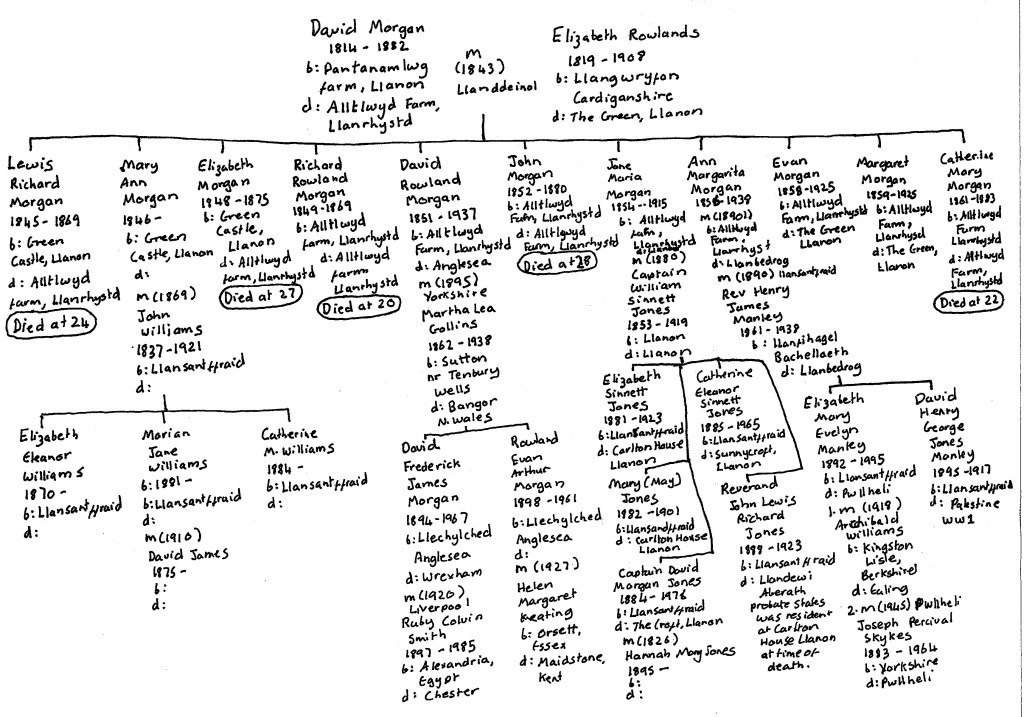 David Morgan
1814 - 1882
b: Pantanamlwg
farm, Llanon
d: Alltlwyd Farm,
Llanrhystd
m
(1843)
Llanddeinol
Elizabeth Rowlands
1819 - 1908
b: Llangwryfon
Cardiganshire
d: The Green, Llanon
Lewis
Richard
Morgan
1845 - 1869
b: Green
Castle, Llanon
d: Alltlwyd
farm, Llanrhystd
Died at 24
Mary
Ann
Morgan
1846 -
b: Green
Castle, Llanon
d:
m (1869)
John
Williams
1837 - 1921
b: Llansantffraid
d:
Elizabeth
Morgan
1848 - 1875
b: Green
Castle,
Llanon
d: Alltlwyd
farm, Llanrhystd
Died at 27
Richard
Rowland
Morgan
1849 - 1869
b: Alltlwyd
farm, Llanrhystd
d: Alltlwyd
farmm
Llanrhystd
Died at 20
David
Rowland
Morgan
1851 - 1937
b: Alltlwyd
Farm, Llanrhystd
d: Anglesea
m (1895)
Yorkshire
Martha Lea
Gollins
1862 - 1938
b: Sutton
nr Tenbury
Wells
d: Bangor
N. Wales
John
Morgan
1852 - 1880
b: Alltlwyd
Farm, Llanrhystd
d: Alltlwyd
Farm, Llanrhystd
Died at 28
Jane
Maria
Morgan
1854 - 1915
b: Alltlwyd
farm,
Llanrhystd
m (1880)
Captain
William
Sinnett
Jones
1853 - 1919
b: Llanon
d: Llanon
Ann
Margarita
Morgan
1856 - 1938
m (1890)
b: Alltlwyd
Farm,
Llanrhyst
d: Llanbedrog
m (1890) Llansantffraid
Rev Henry
James
Manley
1861 - 1938
b: Llanfihagel
Bachellaeth
d: Llanbedrog
Evan
Morgan
1858 - 1925
b: Alltlwyd
Farm, Llanrhystd
d: The Green
Llanon
Margaret
Morgan
1859 - 1925
b: Alltlwyd
Farm,
Llanrhysd
d: The Green,
Llanon
Catherine
Mary
Morgan
1861 - 1883
b: Alltlwyd
Farm
Llanrhystd
d: Altlwyd
Farm,
Llanrhystd
Died at 22
Elizabeth
Eleanor
Williams
1870 -
b: Llansantffraid
d:
Marian
Jane
Williams
b: 1881 -
b: Llansantffraid
d:
m (1910)
David James
1875 -
b:
d:
Catherine
M. Williams
1884 -
b: Llansantffraid
d:
David
Frederick
James
Morgan
1894 - 1967
b: Llechylched
Anglesea
d: Wrexham
m (1920)
Liverpool
Ruby Colvin
Smith
1897 - 1985
b: Alexandria,
Egypt
d: Chester
Rowland
Evan
Arthur
Morgan
1898 - 1961
b: Llechylched
Anglesea
d:
m (1927)
Helen
Margaret
Keating
b: Orsett,
Essex
d: Maidstone,
Kent
Elizabeth
Sinnett
Jones
1881 - 1923
b: Llansantffraid
d: Carlton House
Llanon
Catherine
Eleanor
Sinnett
Jones
1885 - 1965
b: Llansantffraid
d: Sunnycroft,
Llanon
Mary (May)
Jones
1882 - 1901
b: Llansandffraid
d: Carlton House
Llanon
Captain David
Morgan Jones
1884 - 1976
b: Llansantffraid
d: The Croft, Llanon
m (1826)
Hannah Mary Jones
1895 -
b:
d:
Reverand
John Lewis
Richard
Jones
1888 - 1923
b: Llansantffraid
d: Llandewi
Aberath
probate states
was resident
at Carlton
House Llanon
at time of
death.
Elizabeth
Mary
Evelyn
Manley
1892 - 1995
b: Llansantffraid
d: Pwllheli
1. m (1918)
Archibald
Williams
b: Kingston
Lisle,
Berkshire
d: Ealing
2. m (1945) Pwllheli
Joseph Percival
Skykes
1883 - 1964
b: Yorkshire
d: Pwllheli
David
Henry
George
Jones
Manley
1895 - 1917
b: Llansantffraid
d: Palestine
WW1